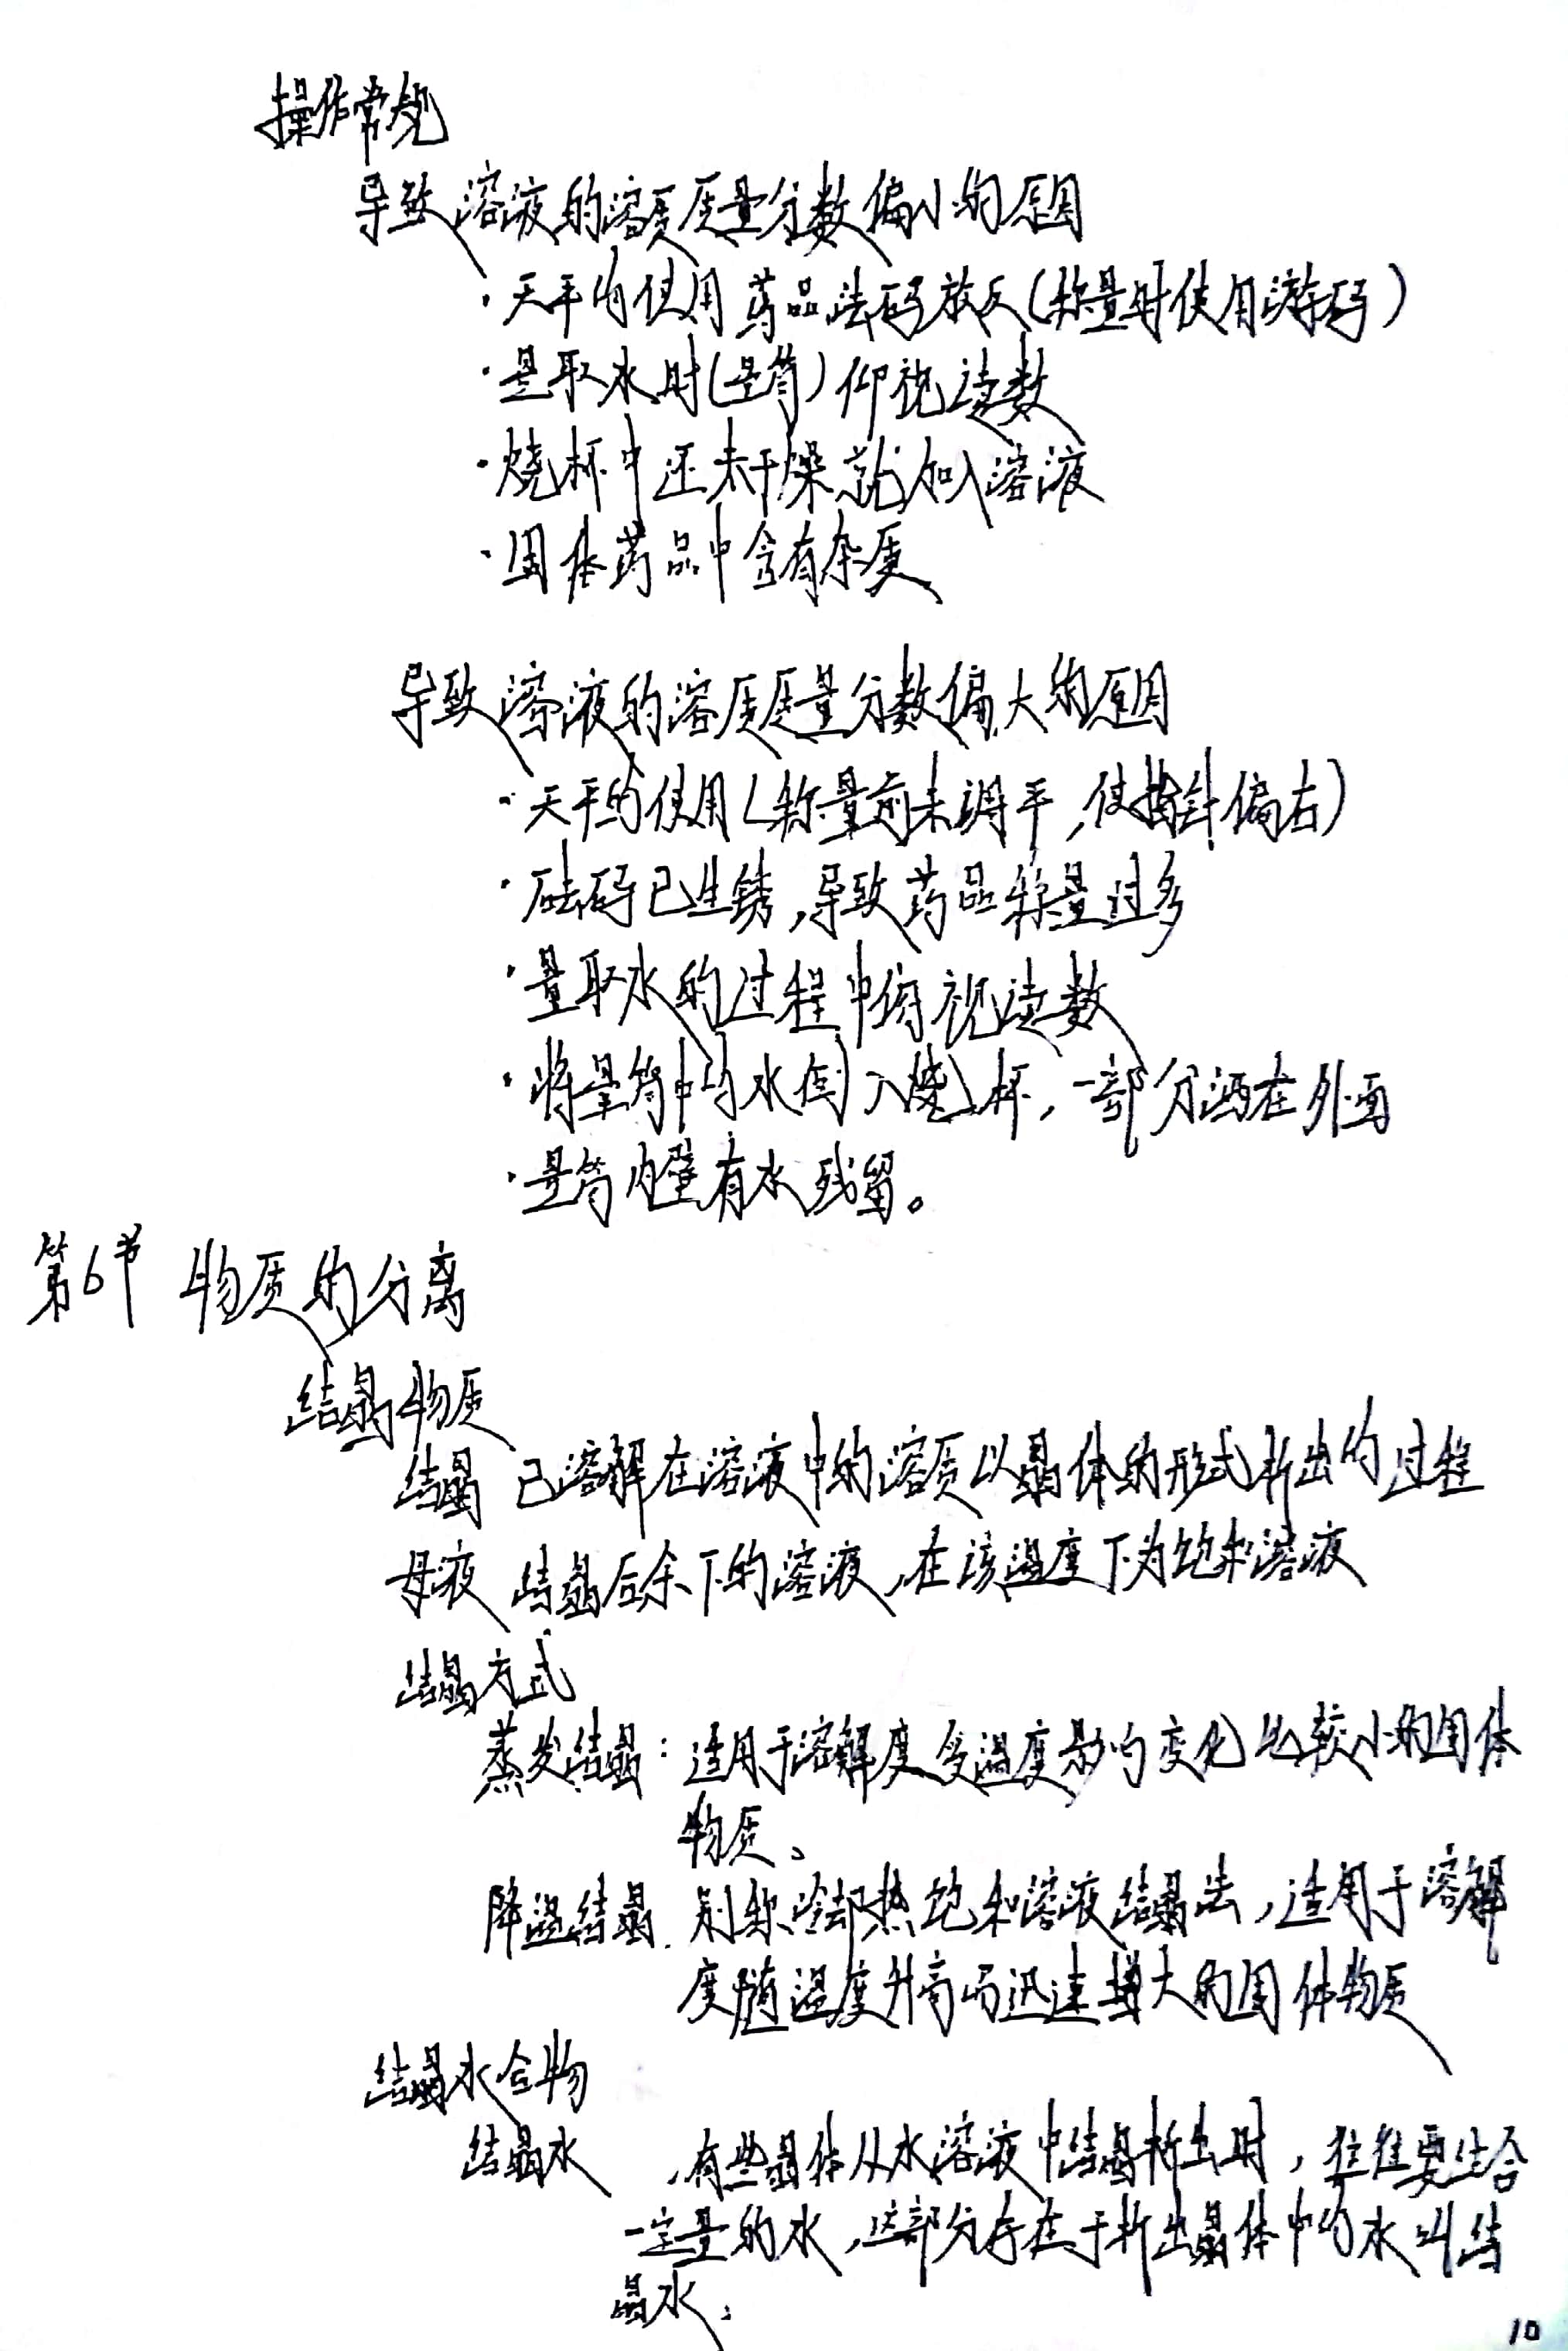 操作常规
导致溶液的溶质质量分数偏小的原因
·天平的使用药品砝码放反(称量时使用游码)
·量取水时(量筒)仰视读数
·烧杯中还未干燥就加入溶液
·固体药品中含有杂质
导致溶液的溶质质量分数偏大的原因
·天平的使用(称量前未调平,使指针偏右)
·砝码已生锈,导致药品称量过多
·量取水的过程中俯视读数
·将量筒中的水倒入烧杯,一部分洒在外面
·量筒内壁有水残留。
第6节 物质的分离
结晶物质
结晶 已溶解在溶液中的溶质以晶体的形式析出的过程
母液 结晶后余下的溶液,在该温度下为饱和溶液
结晶方式
蒸发结晶:适用于溶解度受温度影响变化比较小的固体
物质。
降温结晶. 别称冷却热饱和溶液结晶法,适用于溶解
度随温度升高而迅速增大的固体物质
结晶水合物
结晶水 ,有些晶体从水溶液中结晶析出时,往往要结合
一定量的水,这部分存在于析出晶体中的水叫结
晶水.
10